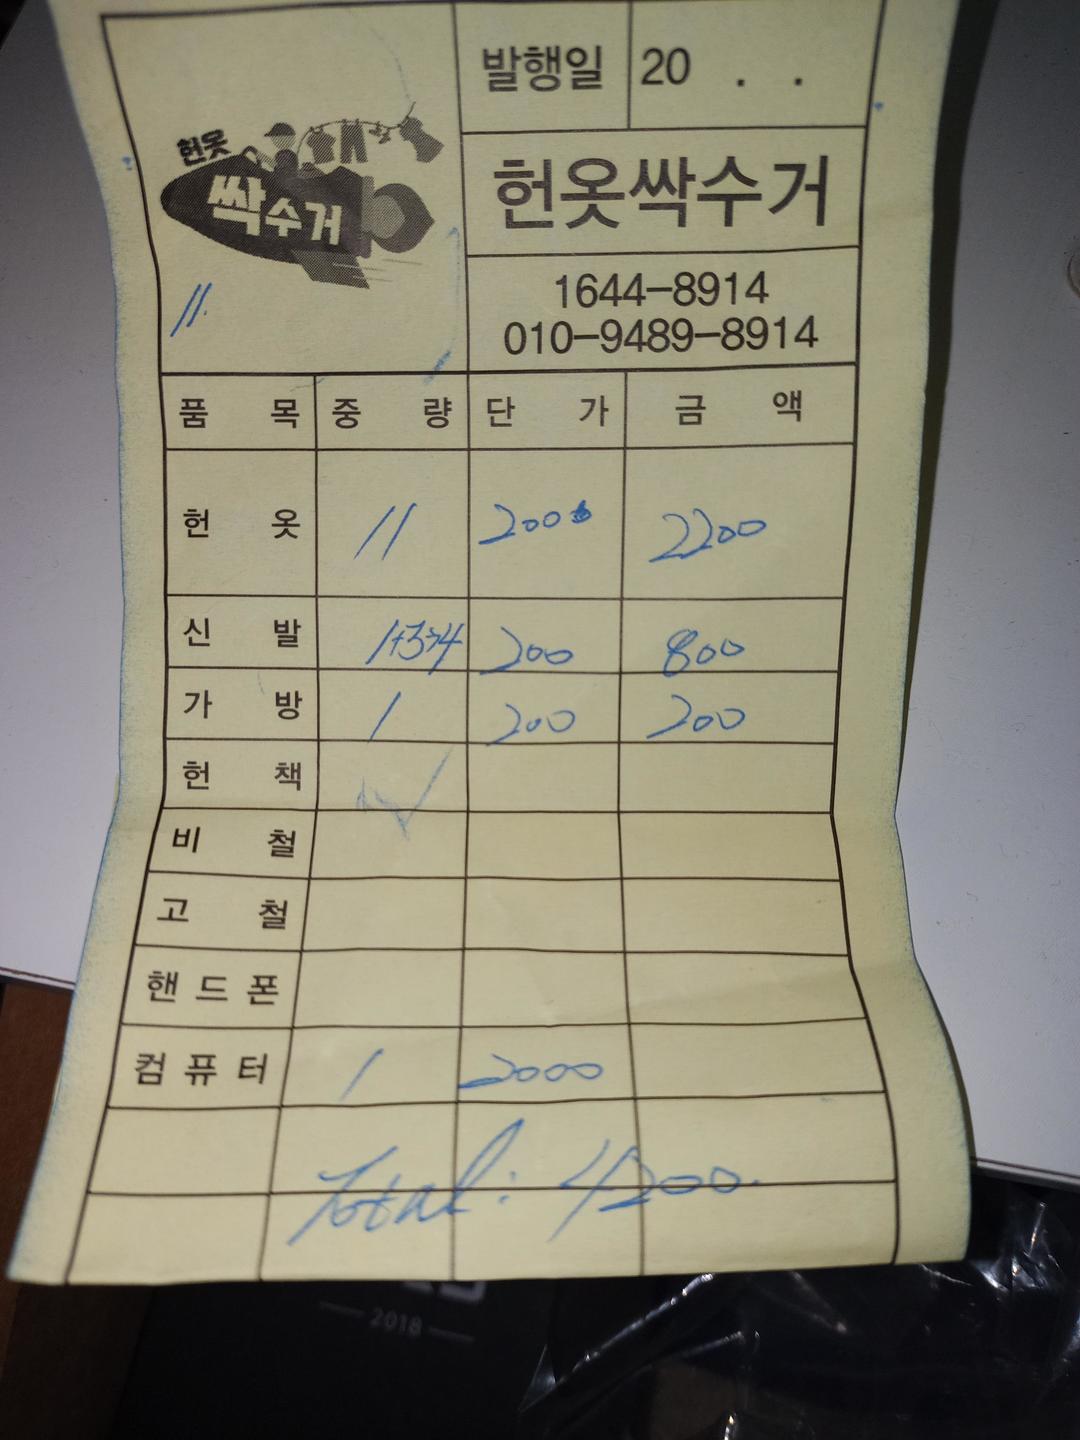 발행일 20 . .
헌옷
싹수거
헌옷싹수거
1644-8914
010-9489-8914
11.
품 목 중 량 단 가 금 액
헌 옷 11 200 2200
신 발 1+3→4 200 800
가 방 1 200 200
헌 책
비 철
고 철
핸드폰
컴퓨터 1 2000
Total: 4200.
2018